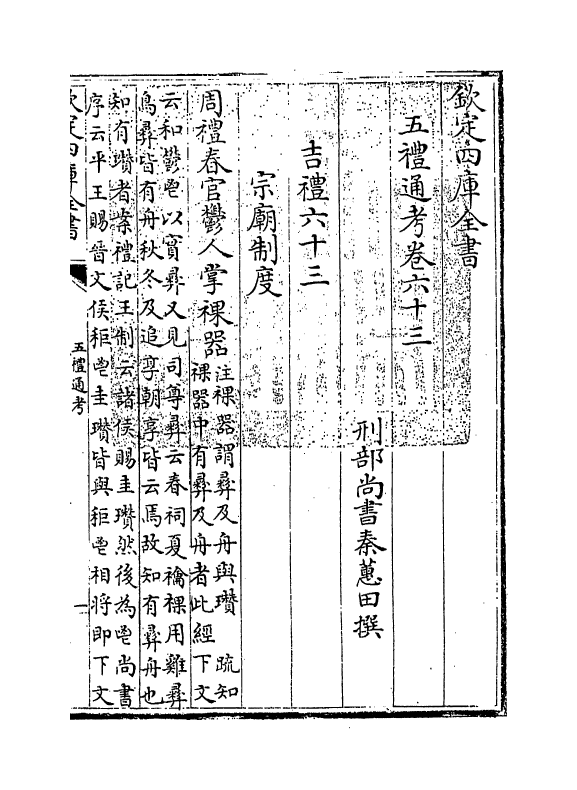 欽定四庫全書
五禮通考卷六十三
刑部尚書秦蕙田撰
吉禮六十三
宗廟制度
周禮春官鬱人掌祼器注祼器謂彛及舟與瓚 疏知
祼器中有彛及舟者此經下文
云和鬱鬯以實彛又見司尊彛云春祠夏禴祼用雞彛
鳥彛皆有舟秋冬及追享朝享皆云焉故知有彛舟也
知有瓚者案禮記王制云諸侯賜圭瓚然後為鬯尚書
序云平王賜晉文侯秬鬯圭瓚皆與秬鬯相將即下文
欽定四庫全書
五禮通考
一